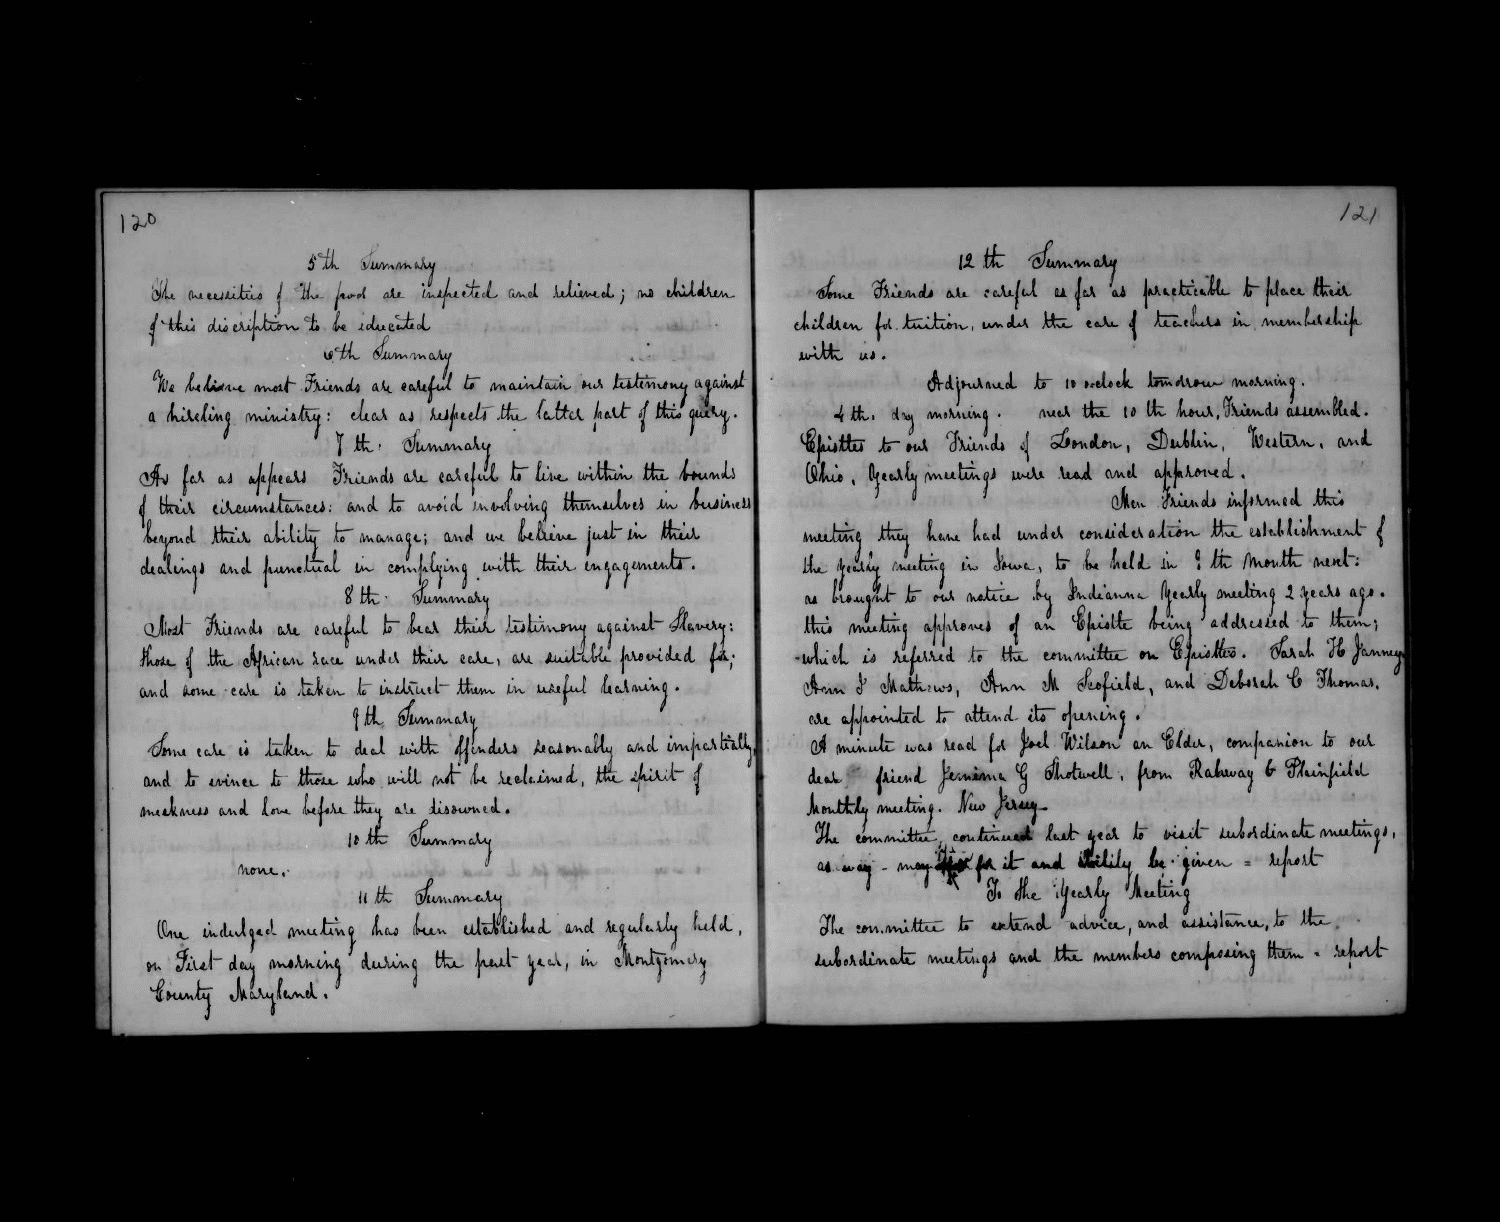 120
5th Summary
The necessities of the poor are inspected and relieved; no children
of this discription to be educated
6th Summary
We believe most Friends are careful to maintain our testimony against
a hireling ministry: clear as respects the latter part of this query.
7th. Summary
As far as appears Friends are careful to live within the bounds
of their circumstances: and to avoid involving themselves in business
beyond their ability to manage; and we believe just in their
dealings and punctual in complying with their engagements.
8th. Summary
Most Friends are careful to bear their testimony against Slavery:
those of the African race under their care, are suitable provided for;
and some care is taken to instruct them in useful learning.
9th Summary
Some care is taken to deal with offenders seasonably and impartially,
and to evince to those who will not be reclaimed, the spirit of
meekness and love before they are disowned.
10th Summary
none.
11th Summary
One indulged meeting has been established and regularly held,
on First day morning during the past year, in Montgomery
County Maryland.
121
12th Summary
Some Friends are careful as far as practicable to place their
children for tuition, under the care of teachers in membership
with us.
Adjourned to 10 oclock tomorrow morning.
4th. day morning. near the 10th hour, Friends assembled.
Epistles to our Friends of London, Dublin, Western, and
Ohio, Yearly meetings were read and approved.
Men Friends informed this
meeting they have had under consideration the establishment of
the yearly meeting in Iowa, to be held in 9th month next:
as brought to our notice by Indianna Yearly meeting 2 years ago.
this meeting approves of an Epistle being addressed to them;
which is referred to the committee on Epistles. Sarah H Janney
Ann J Mathews, Ann M Scofield, and Deborah C Thomas,
are appointed to attend its opening.
A minute was read for Joel Wilson an Elder, companion to our
dear friend Jemima G Shotwell, from Rahway & Plainfield
Monthly meeting. New Jersey
The committee, continued last year to visit subordinate meetings,
as way - may for it and ability be given = report
To the Yearly Meeting
The committee to extend advice, and assistance, to the
subordinate meetings and the members composing them = report